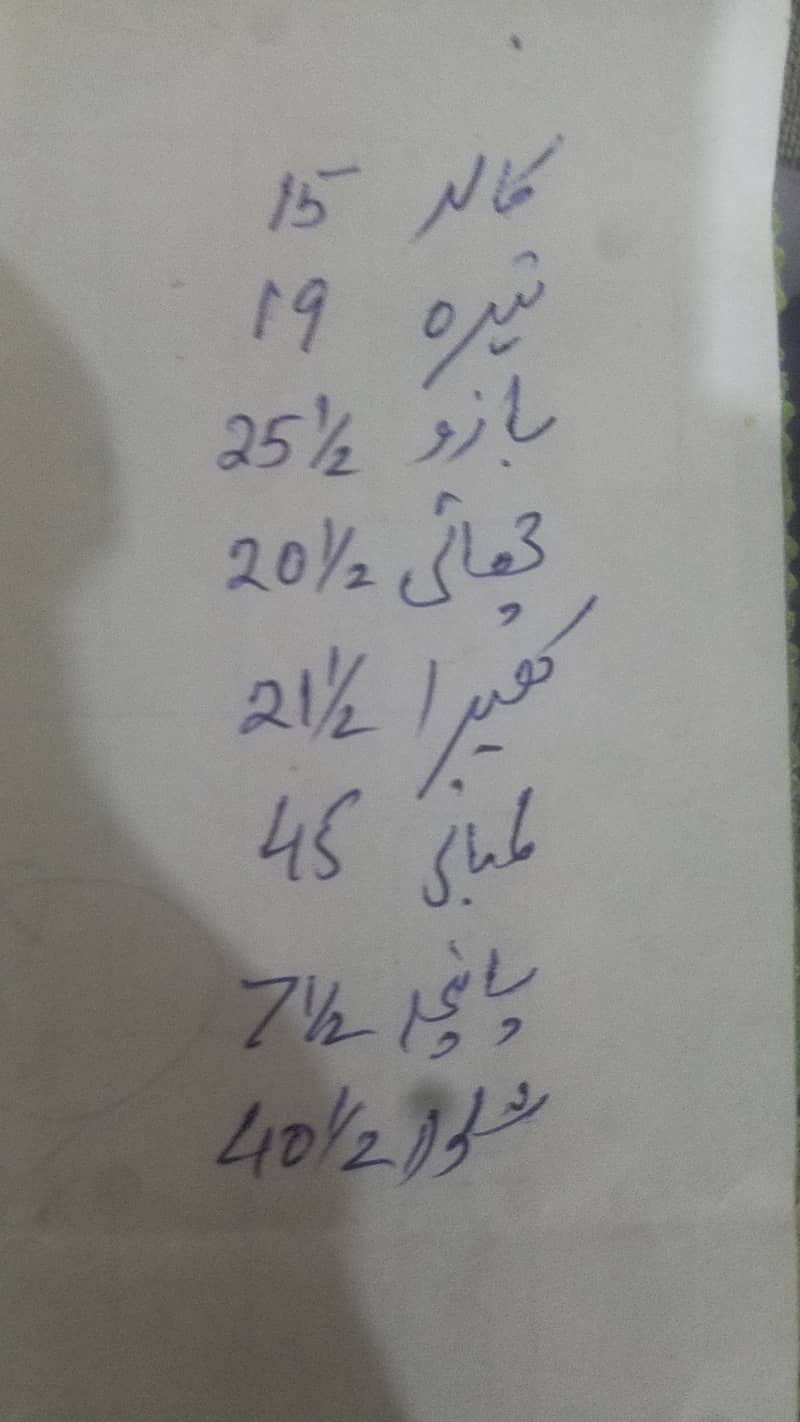 کالر 15
تیرہ 19
بازو 25 1/2
چھاتی 20 1/2
گھیرا 21 1/2
لمبائی 45
پانچہ 7 1/2
شلوار 40 1/2